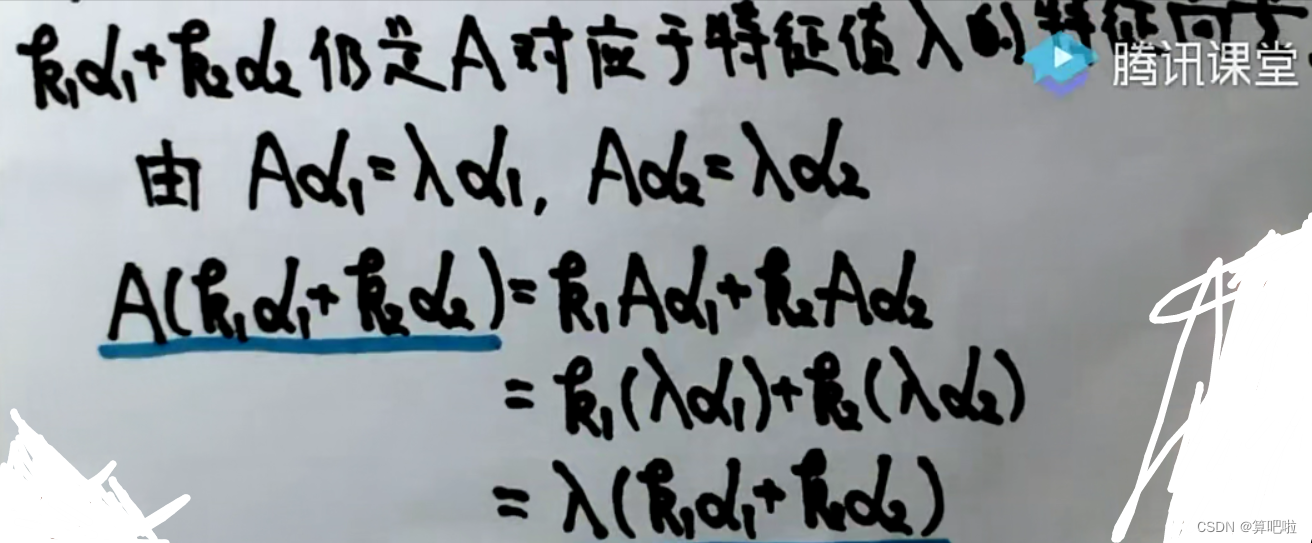 k₁α₁+k₂α₂仍是A对应于特征值λ的特征向
腾讯课堂
由 Aα₁=λα₁, Aα₂=λα₂
A(k₁α₁+k₂α₂)=k₁Aα₁+k₂Aα₂
=k₁(λα₁)+k₂(λα₂)
=λ(k₁α₁+k₂α₂)
CSDN @算吧啦